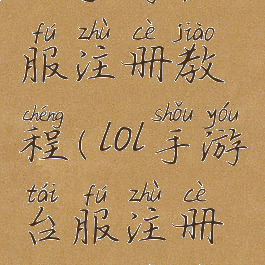 fú zhù cè jiào
服注册教
chéng shǒu yóu
程(lOl手游
tái fú zhù cè
台服注册